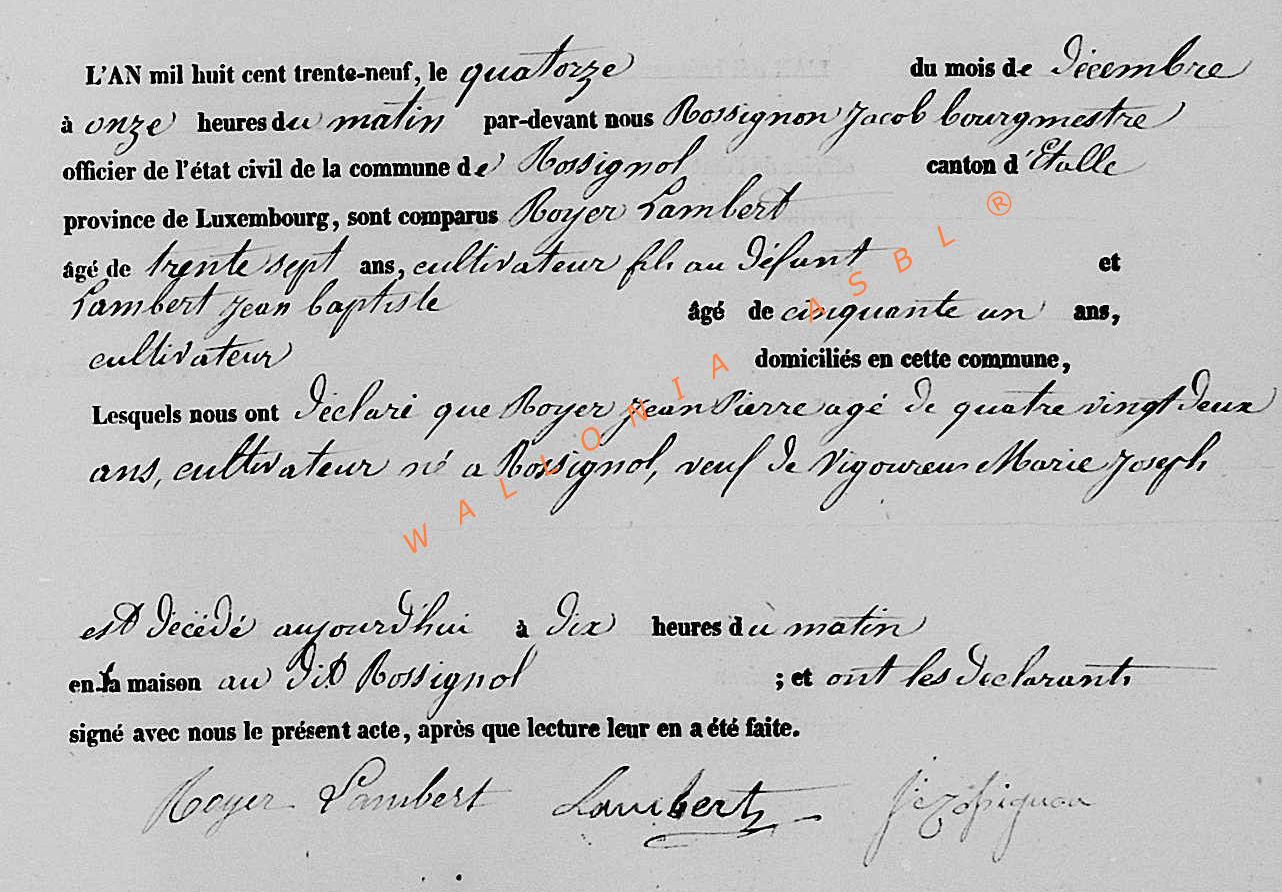 L'AN mil huit cent trente-neuf, le quatorze du mois de Décembre
à onze heures du matin par-devant nous Rossignon Jacob bourgmestre
officier de l'état civil de la commune de Rossignol canton d'Etalle
province de Luxembourg, sont comparus Royer Lambert
âgé de trente sept ans, cultivateur fils au Défunt et
Lambert Jean baptiste âgé de cinquante un ans,
cultivateur domiciliés en cette commune,
Lesquels nous ont Déclaré que Royer Jean Pierre agé de quatre vingt deux
ans, cultivateur né a Rossignol, veuf de Vigoureux Marie Joseph
est Décédé aujourd'hui à Dix heures du matin
en sa maison au dit Rossignol ; et ont les Declarants
signé avec nous le présent acte, après que lecture leur en a été faite.
Royer Lambert Lambert
WALLONIA ASBL ®